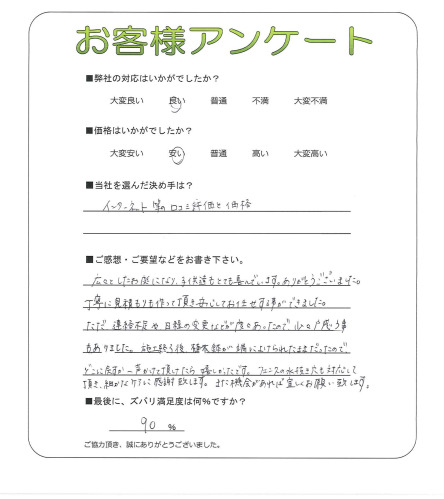 お客様アンケート
■弊社の対応はいかがでしたか?
大変良い 良い 普通 不満 大変不満
■価格はいかがでしたか?
大変安い 安い 普通 高い 大変高い
■当社を選んだ決め手は?
インターネット等の口コミ評価と価格
■ご感想・ご要望などをお書き下さい。
広々としたお庭になり、子供達もとても喜んでいます。ありがとうございました。
丁寧に見積もりも作って頂き安心してお任せする事ができました。
ただ 連絡不足や日程の変更などが度々あったので 感じる事
もありました。施工終了後、植木鉢が端によけられたままだったので、
どこに戻すか一声かけて頂けたら嬉しかったです。フェンスの水抜き穴も対応して
頂き、細かなケアに感謝致します。また機会があれば宜しくお願い致します。
■最後に、ズバリ満足度は何%ですか?
90 %
ご協力頂き、誠にありがとうございました。